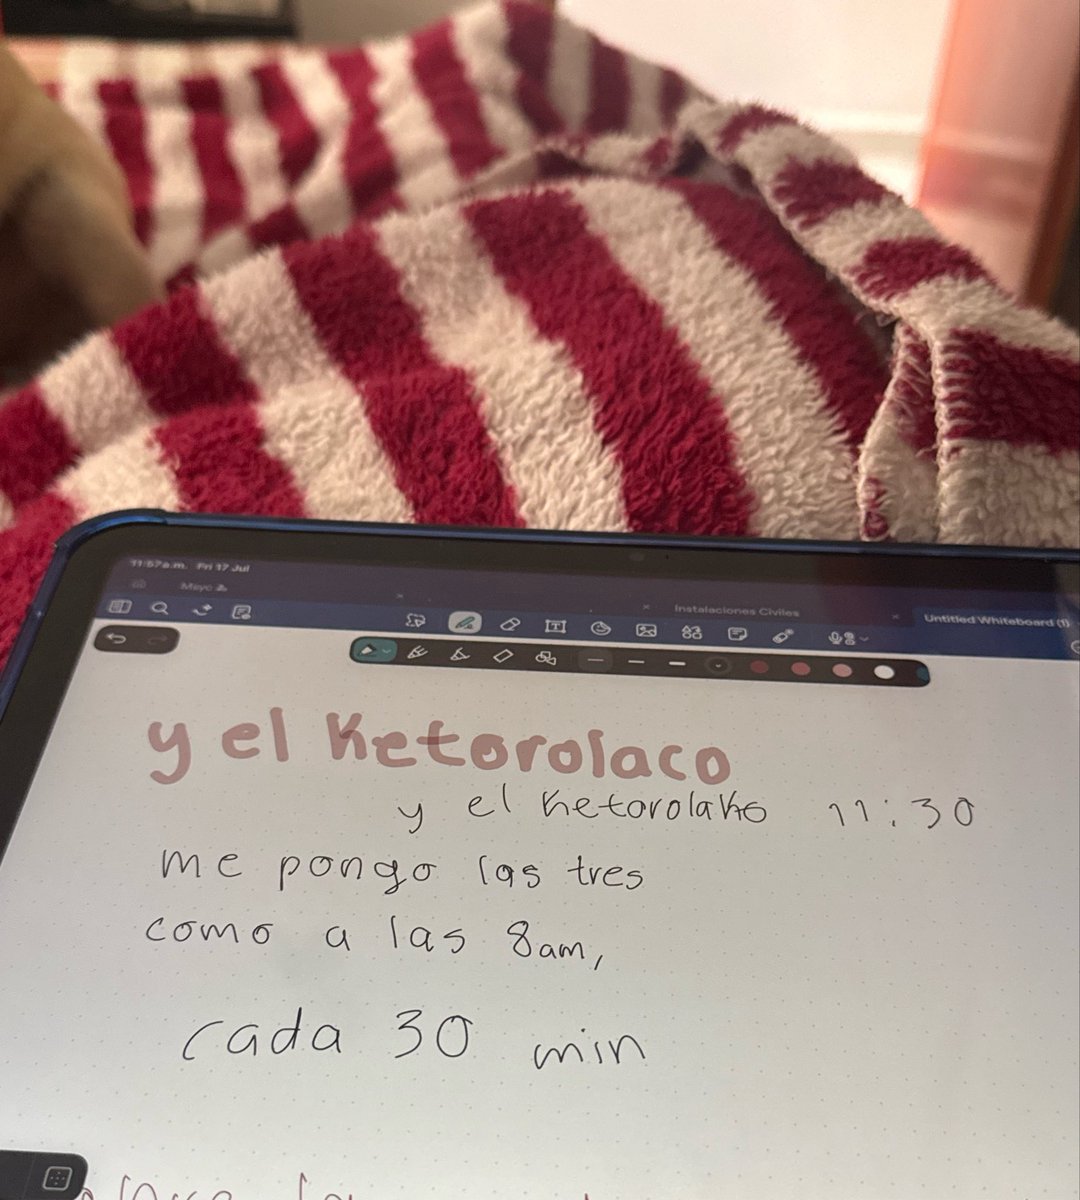 11:57a.m. Fri 17 Jul
Mayo
Instalaciones Civiles
Untitled Whiteboard (1)
y el Ketorolaco
y el Ketorolako 11:30
me pongo las tres
como a las 8am,
cada 30 min